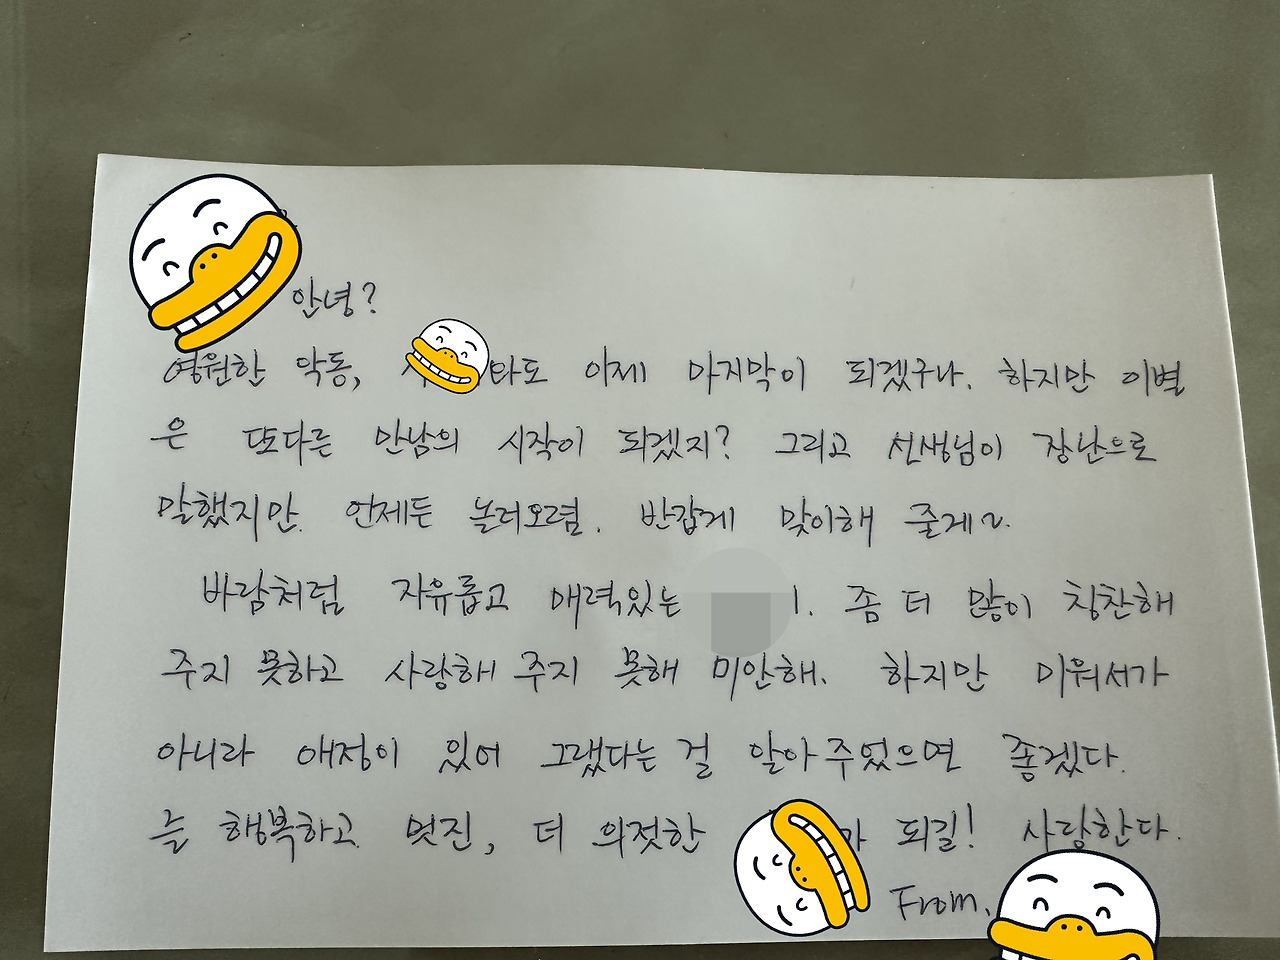 안녕?
영원한 악동, 와도 이제 마지막이 되겠구나. 하지만 이별
은 또다른 만남의 시작이 되겠지? 그리고 선생님이 장난으로
말했지만. 언제든 놀러오렴. 반갑게 맞이해 줄게~.
바람처럼 자유롭고 매력있는 좀 더 많이 칭찬해
주지 못하고 사랑해 주지 못해 미안해. 하지만 미워서가
아니라 애정이 있어 그랬다는 걸 알아주었으면 좋겠다.
늘 행복하고 멋진, 더 의젓한 가 되길! 사랑한다.
From.